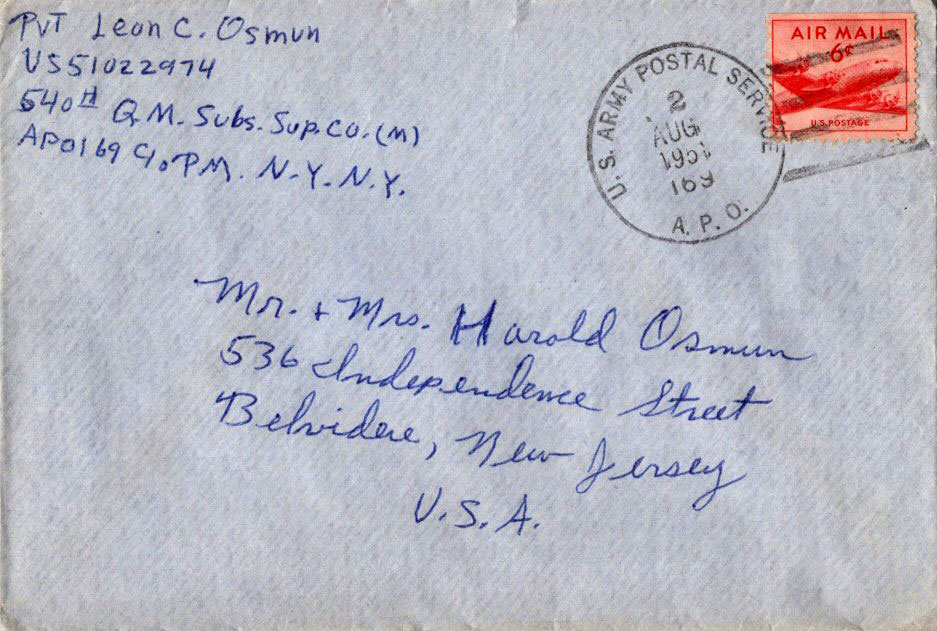 Pvt Leon C. Osmun
US51022974
540th Q.M. Subs. Sup. Co. (M)
APO 169 c/o P.M. N.Y. N.Y.
U. S. ARMY POSTAL SERVICE
2
AUG
1951
169
A. P. O.
AIR MAIL
6¢
U.S. POSTAGE
Mr. + Mrs. Harold Osmun
536 Independence Street
Belvidere, New Jersey
U.S.A.